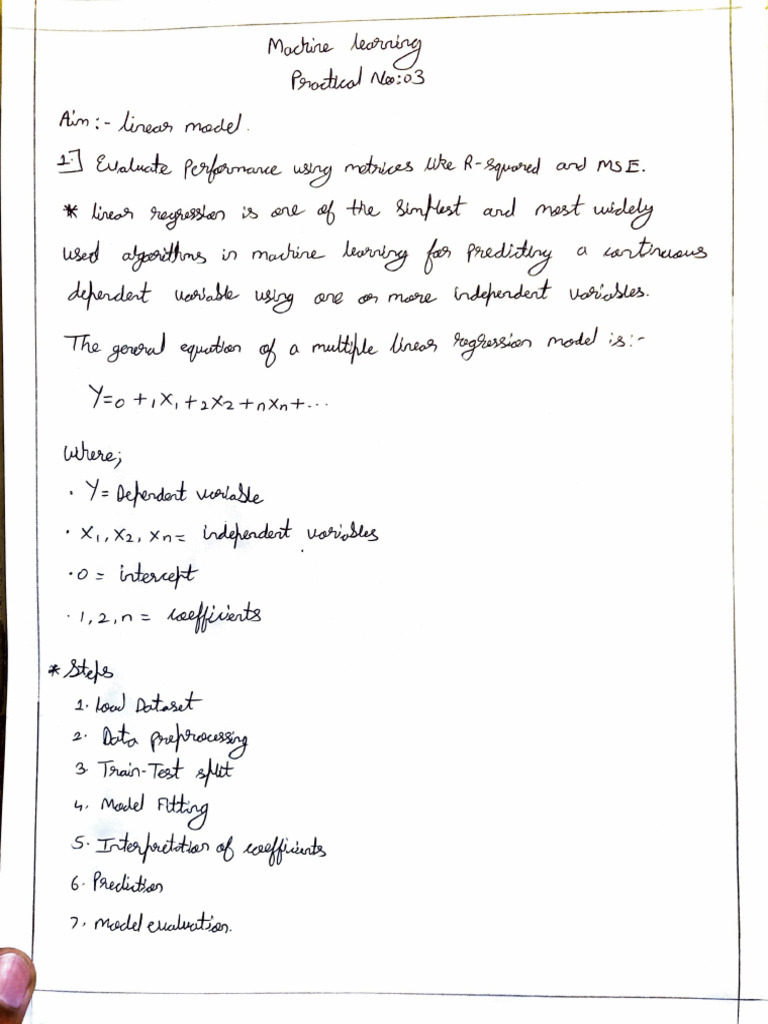 Machine learning
Practical No:03
Aim:- linear model.
1.] Evaluate Performance using metrices like R-squared and MSE.
* linear regression is one of the simplest and most widely
used algorithms in machine learning for predicting a continuous
dependent variable using one or more independent variables.
The general equation of a multiple linear regression model is:-
Y=0 +1X1+2X2+nXn+...
Where;
· Y= Dependent variable
· X1, X2, Xn= independent variables
· 0 = intercept
· 1, 2, n = coefficients
* Steps
1. Load Dataset
2. Data preprocessing
3. Train-Test split
4. Model Fitting
5. Interpretation of coefficients
6. Prediction
7. model evaluation.